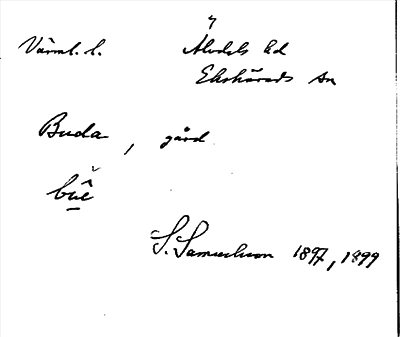 Värml. l. Älvdals hd
Ekshärads sn
Buda, gård
bùê
S. Samuelsson 1897, 1899